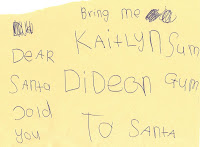 Bring me
Kaitlyn Sum
DEAR
Santa Dideon Gum
Joid
you To Santa